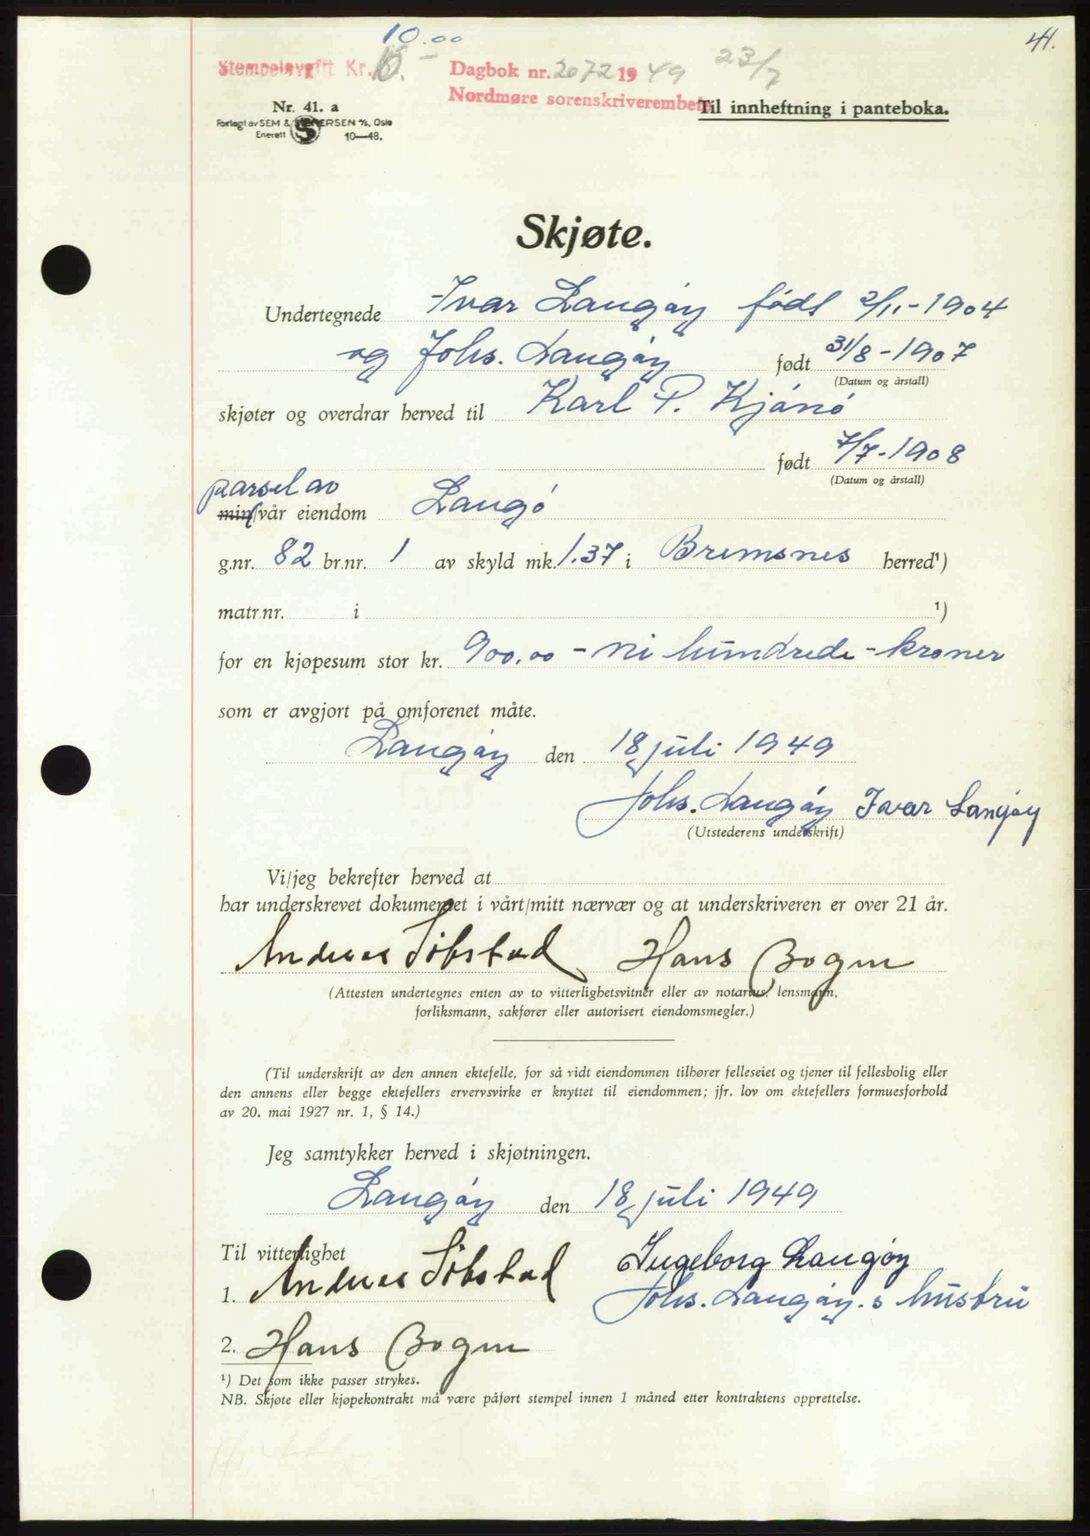 41.
10.00
Stempelavgift Kr. 10.- Dagbok nr. 2072 1949 23/7
Nordmøre sorenskriverembete
Til innheftning i panteboka.
Nr. 41. a
Forlagt av SEM & STENERSEN A/S, Oslo
Enerett S 10—48.
Skjøte.
Undertegnede Ivar Langøy født 2/11-1904
og Johs. Langøy født 31/8-1907
(Datum og årstall)
skjøter og overdrar herved til Karl P. Kjønø
født 7/7-1908
(Datum og årstall)
parsel av
min/vår eiendom Langø
g.nr. 82 br.nr. 1 av skyld mk. 1.37 i Bremsnes herred¹)
matr.nr. i ¹)
for en kjøpesum stor kr. 900.00 - ni hundrede - kroner
som er avgjort på omforenet måte.
Langøy den 18 juli 1949
Johs. Langøy Ivar Langøy
(Utstederens underskrift)
Vi/jeg bekrefter herved at
har underskrevet dokumentet i vårt/mitt nærvær og at underskriveren er over 21 år.
Andreas Søbstad Hans Bogen
(Attesten undertegnes enten av to vitterlighetsvitner eller av notarius, lensmann,
forliksmann, sakfører eller autorisert eiendomsmegler.)
(Til underskrift av den annen ektefelle, for så vidt eiendommen tilhører felleseiet og tjener til fellesbolig eller
den annens eller begge ektefellers ervervsvirke er knyttet til eiendommen; jfr. lov om ektefellers formuesforhold
av 20. mai 1927 nr. 1, § 14.)
Jeg samtykker herved i skjøtningen.
Langøy den 18 juli 1949
Til vitterlighet Ingeborg Langøy
1. Andreas Søbstad Johs. Langøy.s hustru
2. Hans Bogen
¹) Det som ikke passer strykes.
NB. Skjøte eller kjøpekontrakt må være påført stempel innen 1 måned etter kontraktens opprettelse.